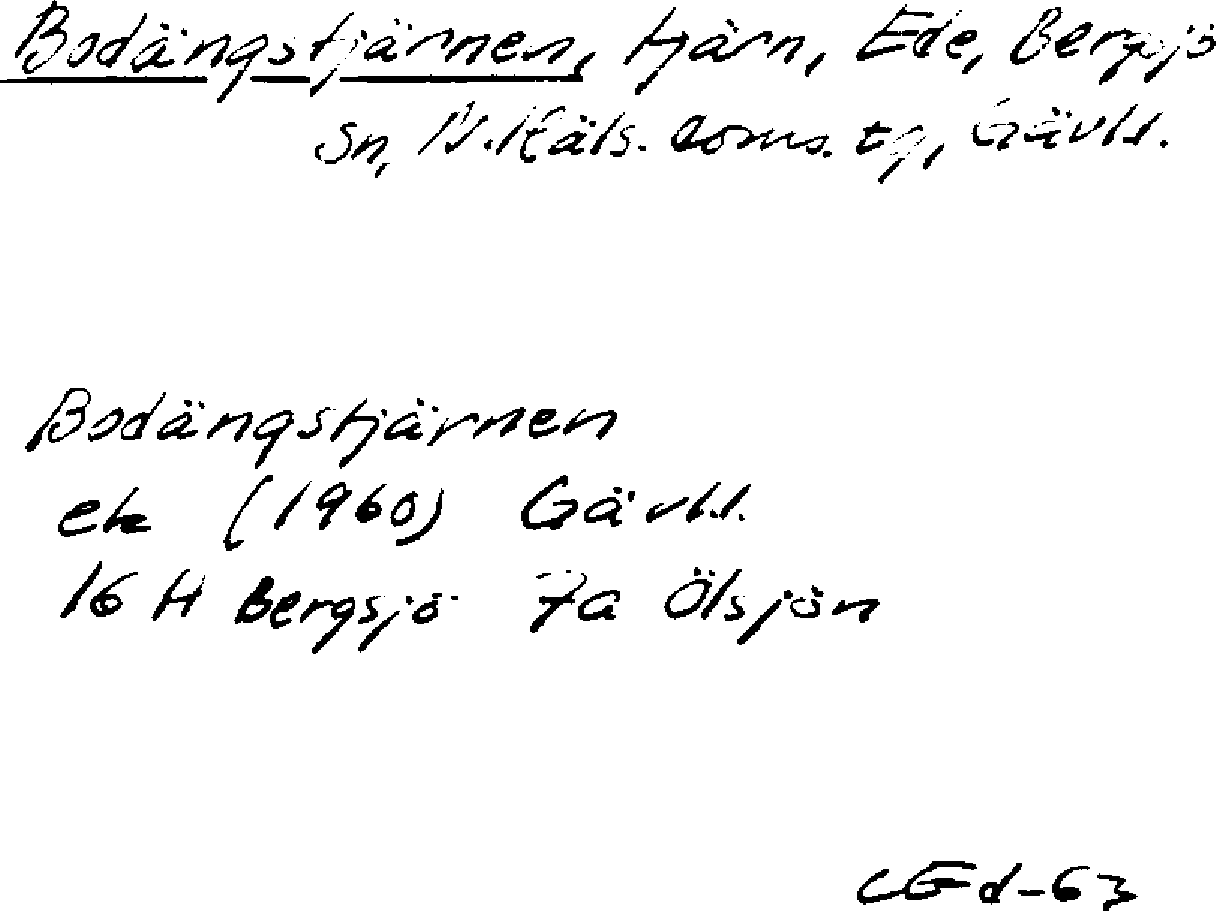 Bodängstjärnen, tjärn, Ede, Bergsjö
sn, N. Häls. doms. tg, Gävl.l.
Bodängstjärnen
ek (1960) Gävl.l.
16 H Bergsjö 7a Ölsjön
CEd-63